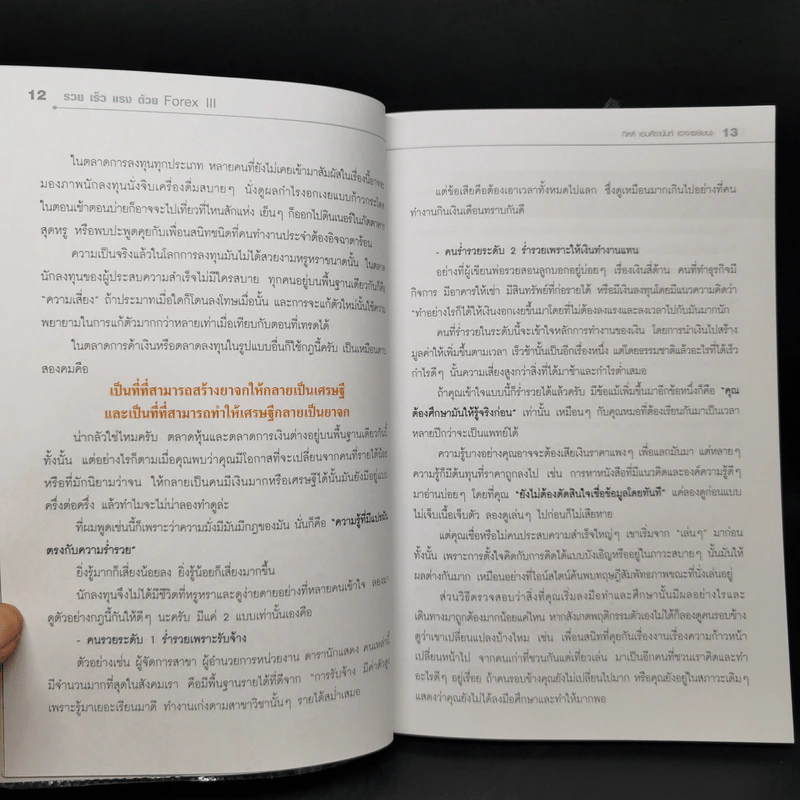 12 รวย เร็ว แรง ด้วย Forex III
ในตลาดการลงทุนทุกประเภท หลายคนที่ยังไม่เคยเข้ามาสัมผัสในเรื่องนี้อาจจะ
มองภาพนักลงทุนนั่งจิบเครื่องดื่มสบายๆ นั่งดูผลกำไรงอกเงยแบบก้าวกระโดด
ในตอนเช้าตอนบ่ายก็อาจจะไปเที่ยวที่ไหนสักแห่ง เย็นๆ ก็ออกไปดินเนอร์ในภัตตาคาร
สุดหรู หรือพบปะพูดคุยกับเพื่อนสนิทชนิดที่คนทำงานประจำต้องอิจฉาตาร้อน
ความเป็นจริงแล้วในโลกการลงทุนมันไม่ได้สวยงามหรูหราขนาดนั้น ในตลาด
นักลงทุนของผู้ประสบความสำเร็จไม่มีใครสบาย ทุกคนอยู่บนพื้นฐานเดียวกันก็คือ
"ความเสี่ยง" ถ้าประมาทเมื่อใดก็โดนลงโทษเมื่อนั้น และการจะแก้ตัวใหม่นั้นใช้ความ
พยายามในการแก้ตัวมากกว่าหลายเท่าเมื่อเทียบกับตอนที่เทรดได้
ในตลาดการค้าเงินหรือตลาดลงทุนในรูปแบบอื่นก็ใช้กฎนี้ครับ เป็นเหมือนดาบ
สองคมคือ
เป็นที่ที่สามารถสร้างยาจกให้กลายเป็นเศรษฐี
และเป็นที่ที่สามารถทำให้เศรษฐีกลายเป็นยาจก
น่ากลัวใช่ไหมครับ ตลาดหุ้นและตลาดการเงินต่างอยู่บนพื้นฐานเดียวกันนี้
ทั้งนั้น แต่อย่างไรก็ตามเมื่อคุณพบว่าคุณมีโอกาสที่จะเปลี่ยนจากคนที่รายได้น้อย
หรือที่มักนิยามว่าจน ให้กลายเป็นคนมีเงินมากหรือเศรษฐีได้นั้นมันยังมีอยู่แบบ
ครึ่งต่อครึ่ง แล้วทำไมจะไม่น่าลองทำดูล่ะ
ที่ผมพูดเช่นนี้ก็เพราะว่าความมั่งมีมันมีกฎของมัน นั่นก็คือ "ความรู้ที่มีแปรผัน
ตรงกับความร่ำรวย"
ยิ่งรู้มากก็เสี่ยงน้อยลง ยิ่งรู้น้อยก็เสี่ยงมากขึ้น
นักลงทุนจึงไม่ได้มีชีวิตที่หรูหราและดูง่ายดายอย่างที่หลายคนเข้าใจ ลองมา
ดูตัวอย่างกฎนี้กันให้ดีๆ นะครับ มีแค่ 2 แบบเท่านั้นเองคือ
- คนรวยระดับ 1 ร่ำรวยเพราะรับจ้าง
ตัวอย่างเช่น ผู้จัดการสาขา ผู้อำนวยการหน่วยงาน ดารานักแสดง คนเหล่านี้
มีจำนวนมากที่สุดในสังคมเรา คือมีพื้นฐานรายได้ที่ดีจาก "การรับจ้าง มีค่าตัวสูง
เพราะรู้มาเยอะเรียนมาดี ทำงานเก่งตามสาขาวิชานั้นๆ รายได้สม่ำเสมอ
กิตติ เอนศิรอนันท์ (อาจารย์เอน) 13
แต่ข้อเสียคือต้องเอาเวลาทั้งหมดไปแลก ซึ่งดูเหมือนมากเกินไปอย่างที่คน
ทำงานกินเงินเดือนทราบกันดี
- คนร่ำรวยระดับ 2 ร่ำรวยเพราะให้เงินทำงานแทน
อย่างที่ผู้เขียนพ่อรวยสอนลูกบอกอยู่บ่อยๆ เรื่องเงินสี่ด้าน คนที่ทำธุรกิจมี
กิจการ มีอาคารให้เช่า มีสินทรัพย์ที่ก่อรายได้ หรือมีเงินลงทุนโดยมีแนวความคิดว่า
"ทำอย่างไรก็ได้ให้เงินงอกเงยขึ้นมาโดยที่ไม่ต้องลงแรงและลงเวลาไปกับมันมากนัก
คนที่ร่ำรวยในระดับนี้จะเข้าใจหลักการทำงานของเงิน โดยการนำเงินไปสร้าง
มูลค่าให้เพิ่มขึ้นตามเวลา เร็วช้านั้นเป็นอีกเรื่องหนึ่ง แต่โดยธรรมชาติแล้วอะไรที่ได้เร็ว
กำไรดีๆ นั้นความเสี่ยงสูงกว่าสิ่งที่ได้มาช้าและกำไรต่ำเสมอ
ถ้าคุณเข้าใจแบบนี้ก็ร่ำรวยได้แล้วครับ มีข้อแม้เพิ่มขึ้นมาอีกข้อหนึ่งก็คือ "คุณ
ต้องศึกษามันให้รู้จริงก่อน" เท่านั้น เหมือนๆ กับคุณหมอที่ต้องเรียนกันมาเป็นเวลา
หลายปีกว่าจะเป็นแพทย์ได้
ความรู้บางอย่างคุณอาจจะต้องเสียเงินราคาแพงๆ เพื่อแลกมันมา แต่หลายๆ
ความรู้ก็มีต้นทุนที่ราคาถูกลงไป เช่น การหาหนังสือที่มีแนวคิดและองค์ความรู้ดีๆ
มาอ่านบ่อยๆ โดยที่คุณ "ยังไม่ต้องตัดสินใจเชื่อข้อมูลโดยทันที" แค่ลองดูก่อนแบบ
ไม่เจ็บเนื้อเจ็บตัว ลองดูเล่นๆ ไปก่อนก็ไม่เสียหาย
แต่คุณเชื่อหรือไม่คนประสบความสำเร็จใหญ่ๆ เขาเริ่มจาก "เล่นๆ" มาก่อน
ทั้งนั้น เพราะการตั้งใจคิดกับการคิดได้แบบบังเอิญหรืออยู่ในภาวะสบายๆ นั้นมันให้
ผลต่างกันมาก เหมือนอย่างที่ไอน์สไตน์ค้นพบทฤษฎีสัมพัทธภาพขณะที่นั่งเล่นอยู่
ส่วนวิธีตรวจสอบว่าสิ่งที่คุณเริ่มลงมือทำและศึกษานั้นมีผลอย่างไรและ
เดินทางมาถูกต้องมากน้อยแค่ไหน หากสังเกตพฤติกรรมตัวเองไม่ได้ก็ลองดูคนรอบข้าง
ดูว่าเขาเปลี่ยนแปลงบ้างไหม เช่น เพื่อนสนิทที่คุยกันเรื่องงานเรื่องความก้าวหน้า
เปลี่ยนหน้าไป จากคนเก่าที่ชวนกันแต่เที่ยวเล่น มาเป็นอีกคนที่ชวนเราคิดและทำ
อะไรดีๆ อยู่เรื่อย ถ้าคนรอบข้างคุณยังไม่เปลี่ยนไปมาก หรือคุณยังอยู่ในสภาวะเดิมๆ
แสดงว่าคุณยังไม่ได้ลงมือศึกษาและทำให้มากพอ